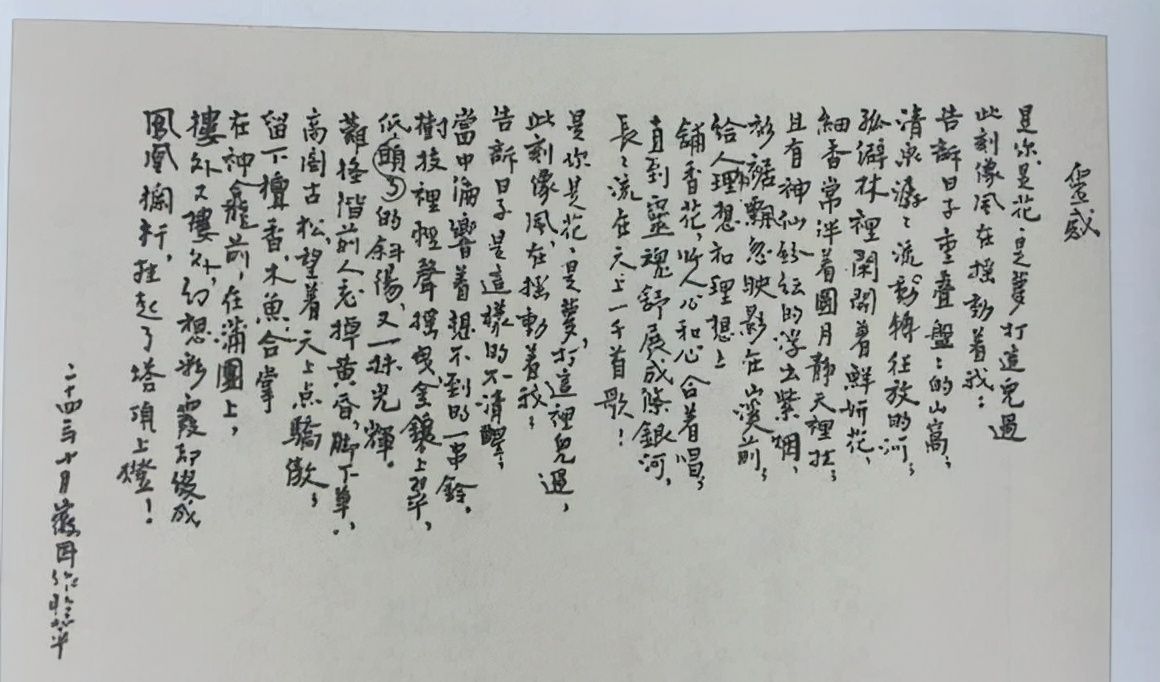 靈感
是你、是花、是夢、打這兒過
此刻像風在搖動着我；
告訴日子重疊盤〻的山窩；
清泉潺〻流動轉狂放的河；
孤僻林裡閑開着鮮妍花，
細香常伴着圓月靜天裡挂；
且有神仙紛紜的浮出紫烟，
衫裾飄忽映影在山溪前；
給人的理想和理想上
鋪香花，叫人心和心合着唱；
直到靈魂舒展成條銀河，
長〻流在天上一千首歌！
是你、是花、是夢，打這裡兒過，
此刻像風，在搖動着我；
告訴日子是這樣的不清醒；
當中偏響着想不到的一串鈴。
樹枝裡輕聲搖曳，金鑲上翠，
低頭了的斜陽，又一抹光輝。
難怪階前人忘掉黄昏，脚下草，
高閣古松，望着天上点驕傲；
留下檀香、木魚、合掌
在神龕前，在蒲團上，
樓外又樓外，幻想彩霞却綴成
鳳凰欄杆，挂起了塔頂上燈！
二十四年十月徽因作於北平